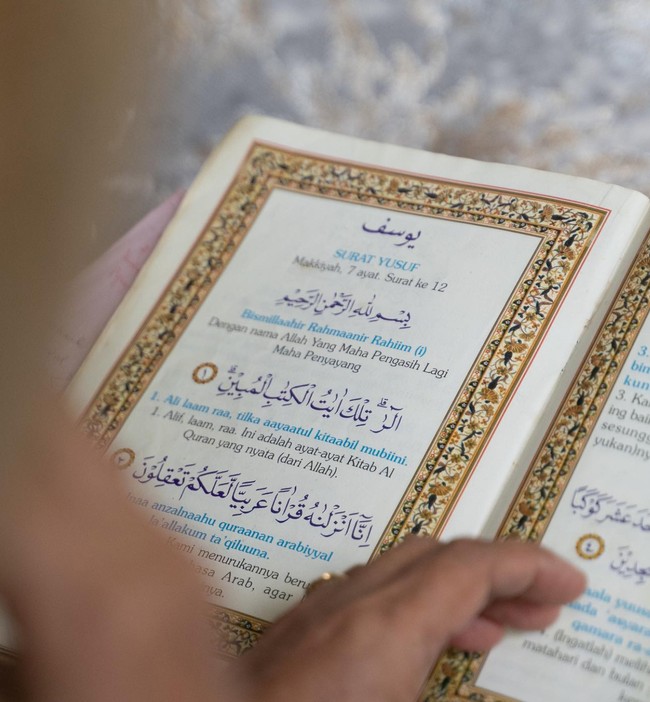 يوسف
SURAT YUSUF
Makkiyah, 7 ayat. Surat ke 12
بِسْمِ اللهِ الرَّحْمٰنِ الرَّحِيْمِ
Bismillaahir Rahmaanir Rahiim (i)
Dengan nama Allah Yang Maha Pengasih Lagi
Maha Penyayang
الٓرٰ ۗ تِلْكَ اٰيٰتُ الْكِتٰبِ الْمُبِيْنِ ۗ ١
1. Ali laam raa, tilka aayaatul kitaabil mubiini.
1. Alif, laam, raa. Ini adalah ayat-ayat Kitab Al
Quran yang nyata (dari Allah).
اِنَّآ اَنْزَلْنٰهُ قُرْاٰنًا عَرَبِيًّا لَّعَلَّكُمْ تَعْقِلُوْنَ
anzalnaahu quraanan arabiyyal
la'allakum ta'qiluuna.
Kami menurunkannya
Arab, agar
3.
3.
ing
عَشَرَ كَوْكَبًا
٤
qamara
(Ingatlah)
matahari dan bulan